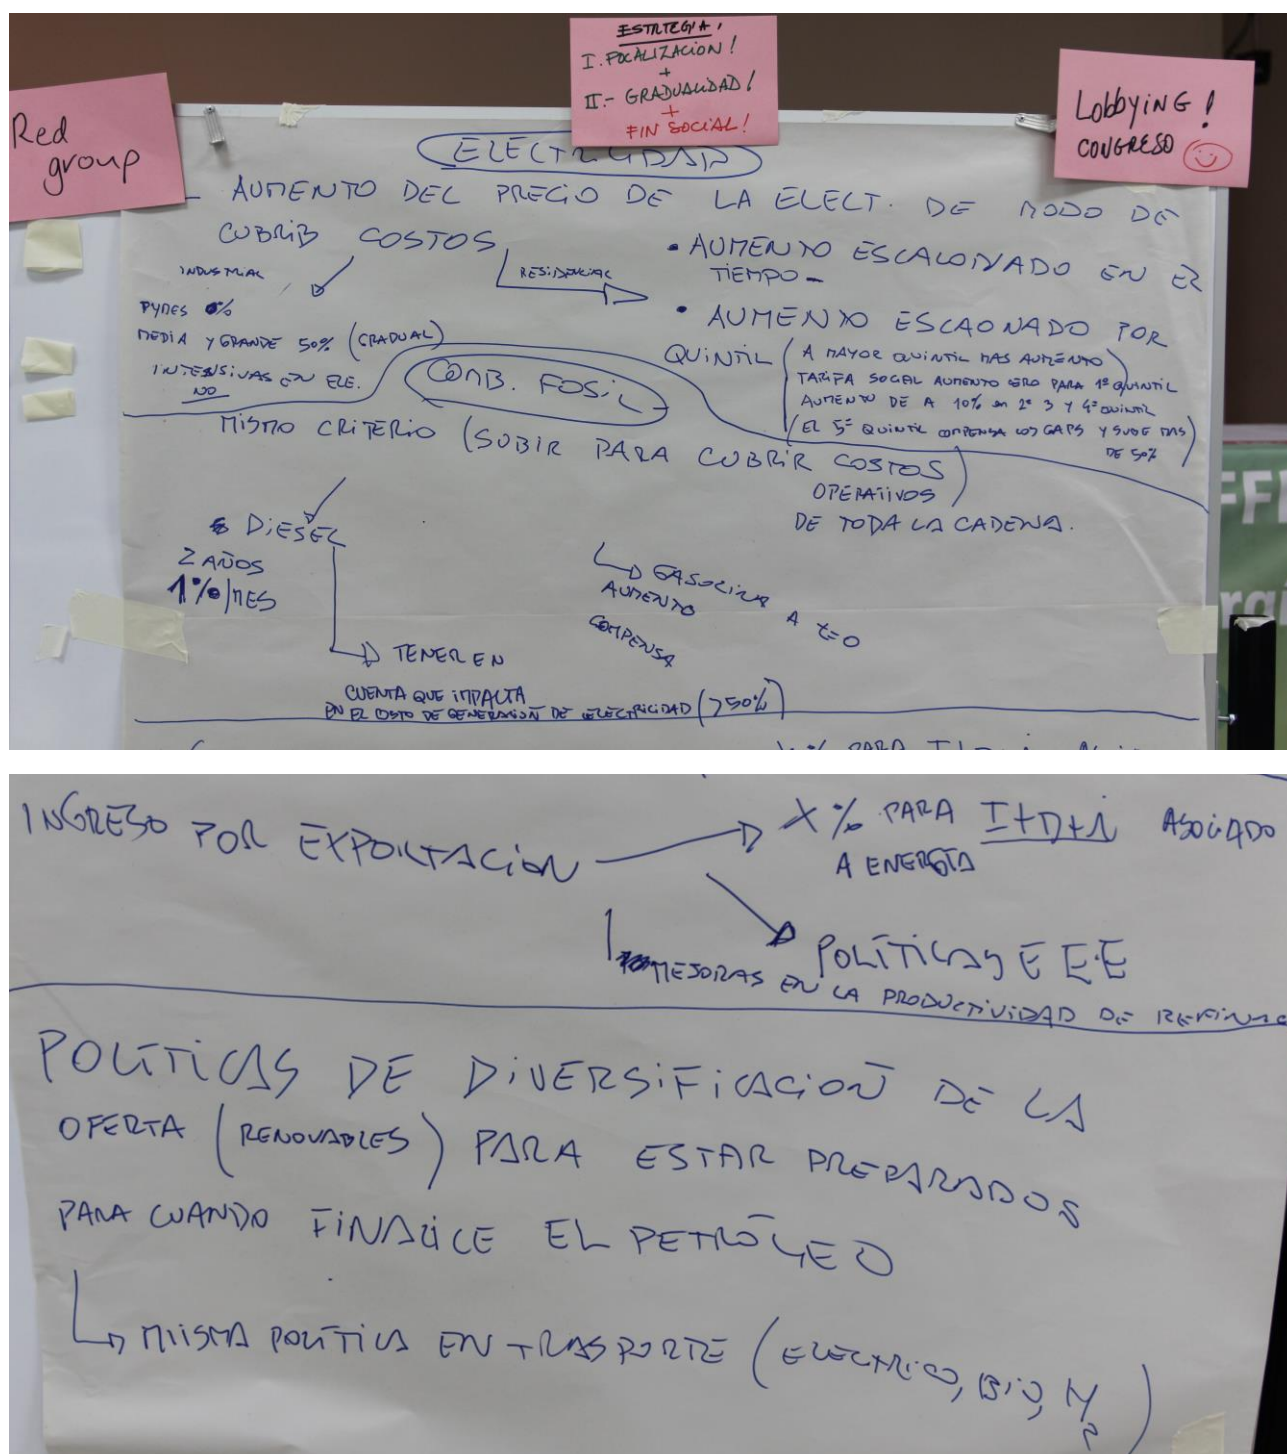 Red
group
ESTRTEGIA!
I. FOCALIZACION!
+
II.- GRADUALIDAD!
+
FIN SOCIAL!
LObbyiNG!
CONGRESO
ELECTRICIDAD
- AUMENTO DEL PRECIO DE LA ELECT. DE MODO DE
CUBRIR COSTOS
INDUSTRIAL
PYMES 0%
MEDIA Y GRANDE 50% (GRADUAL)
INTENSIVAS EN ELE.
NO
RESIDENCIAL
• AUMENTO ESCALONADO EN EL
TIEMPO-
• AUMENTO ESCAONADO POR
QUINTIL
(A MAYOR QUINTIL MAS AUMENTO)
TARIFA SOCIAL AUMENTO CERO PARA 1º QUINTIL
AUMENTO DE A 10% en 2º 3 Y 4º QUINTIL
(EL 5º QUINTIL COMPENSA LOS GAPS Y SUBE MAS
DE 50%)
COMB. FOSIL
MISMO CRITERIO (SUBIR PARA CUBRIR COSTOS
OPERATIVOS)
DE TODA LA CADENA.
DIESEL
2 AÑOS
1%/MES
TENER EN
CUENTA QUE IMPACTA
EN EL COSTO DE GENERACIÓN DE ELECTRICIDAD (>50%)
GASOLINA A t=0
AUMENTO
COMPENSA
FF
PARA I+D+i
INGRESO POR EXPORTACION
X% PARA I+D+i ASOCIADO
A ENERGÍA
POLÍTICAS E E.E
MEJORAS EN LA PRODUCTIVIDAD DE REFINAC
POLÍTICAS DE DIVERSIFICACION DE LA
OFERTA (RENOVABLES) PARA ESTAR PREPARADOS
PARA CUANDO FINALICE EL PETRÓLEO
MIISMA POLÍTICA EN TRASPORTE (ELECTRICO, BIO, H2)